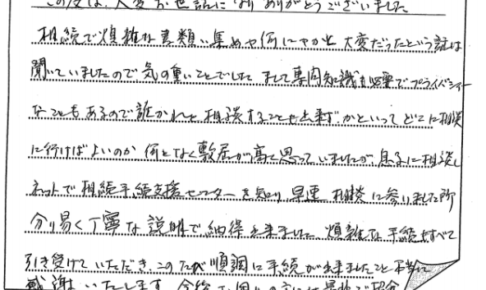 この度は、大変お世話になりありがとうございました
相続で煩雑な書類い集めや何にやかと大変だったという話は
聞いていましたので気の重いことでした まして専門知識も必要でプライバシー
なこともあるので誰かれと相談することも出来ず、かといってどこに相談
に行けばよいのか 何となく敷居が高く思っていましたが、息子に相談し
ネットで相続手続支援センターを知り、早速 相談に参りました所
分り易く丁寧な説明で納得出来ました。煩雑な手続もすべて
引き受けていただき、このたび順調に手続が出来ましたこと
感謝いたします